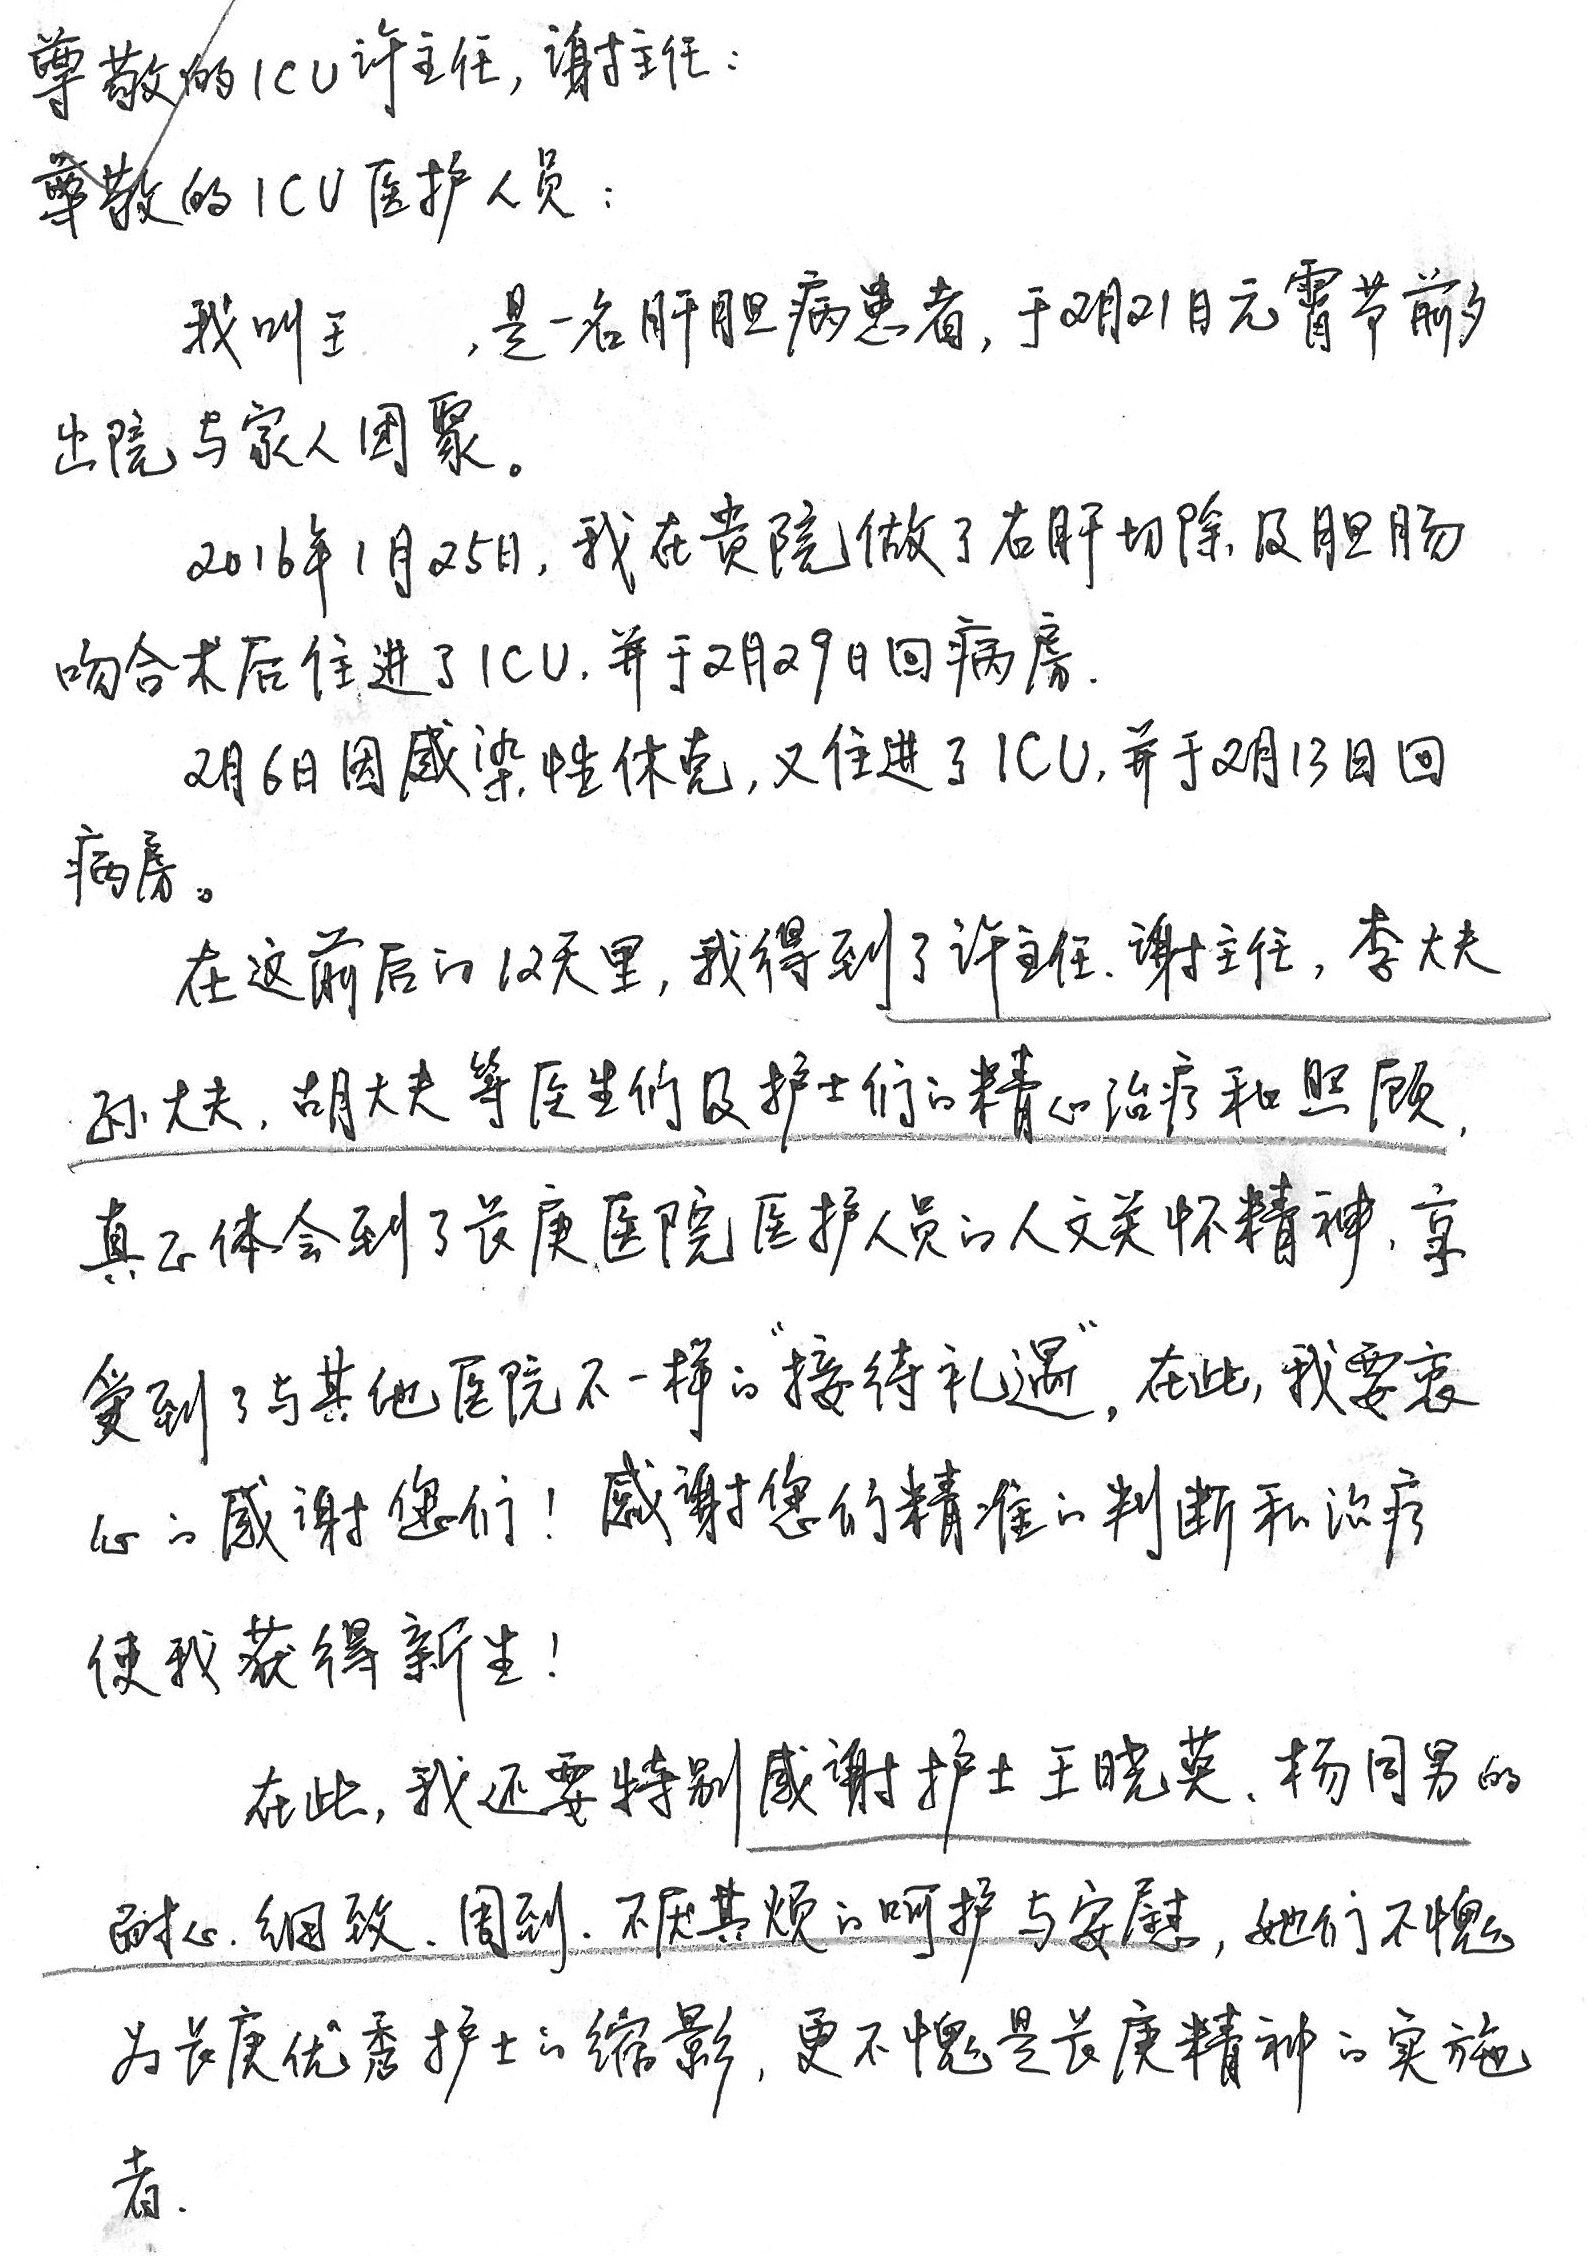 尊敬的ICU许主任,谢主任:
尊敬的ICU医护人员:
我叫王 ,是一名肝胆病患者,于2月21日元宵节前夕
出院与家人团聚。
2016年1月25日,我在贵院做了右肝切除及胆肠
吻合术后住进了ICU,并于2月29日回病房.
2月6日因感染性休克,又住进了ICU,并于2月13日回
病房。
在这前后的12天里,我得到了许主任、谢主任,李大夫
孙大夫,胡大夫等医生们及护士们的精心治疗和照顾,
真正体会到了长庚医院医护人员的人文关怀精神,享
受到了与其他医院不一样的"接待礼遇"。在此,我要衷
心的感谢您们!感谢您们精准的判断和治疗
使我获得新生!
在此,我还要特别感谢护士王晓英、杨同男的
耐心、细致、周到、不厌其烦的呵护与安慰,她们不愧
为长庚优秀护士的缩影,更不愧是长庚精神的实施
者.